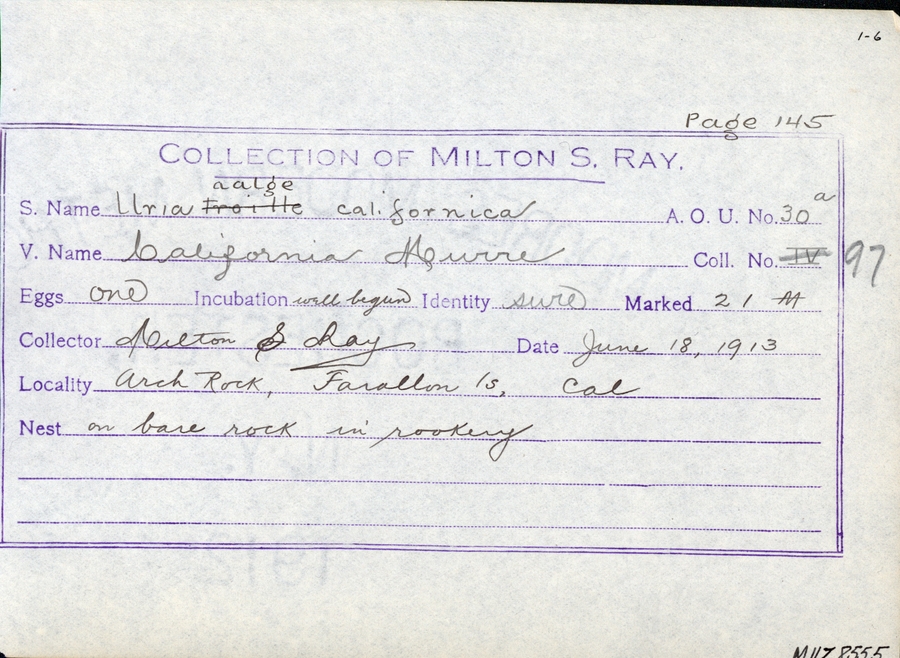 1-6
Page 145
COLLECTION OF MILTON S. RAY.
aalge
S. Name Uria troille californica A. O. U. No. 30 a
V. Name California Murre Coll. No. IV 97
Eggs one Incubation well begun Identity sure Marked 21 A
Collector Milton S Ray Date June 18, 1913
Locality Arch Rock, Farallon Is, Cal
Nest on bare rock in rookery
MVZ 8555